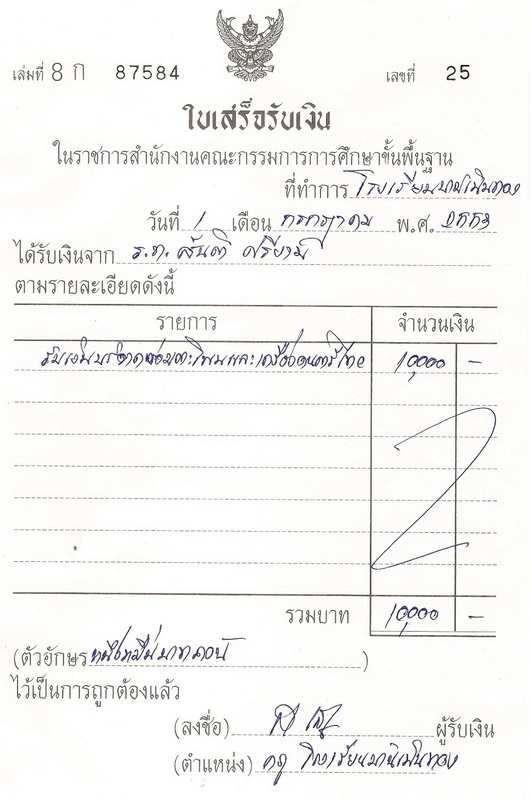 เล่มที่ 8 ก 87584 เลขที่ 25
ใบเสร็จรับเงิน
ในราชการสำนักงานคณะกรรมการการศึกษาขั้นพื้นฐาน
ที่ทำการ โรงเรียนบ้านเนินทอง
วันที่ 1 เดือน กรกฎาคม พ.ศ.
ได้รับเงินจาก ร.ต. สันติ ศรียามี
ตามรายละเอียดดังนี้
รายการ จำนวนเงิน
รับเงินบริจาคซ่อมตะโพนและเครื่องดนตรีไทย 10,000 -
รวมบาท 10,000 -
(ตัวอักษร หนึ่งหมื่นบาทถ้วน )
ไว้เป็นการถูกต้องแล้ว
(ลงชื่อ) ผู้รับเงิน
(ตำแหน่ง) ครู โรงเรียนบ้านเนินทอง